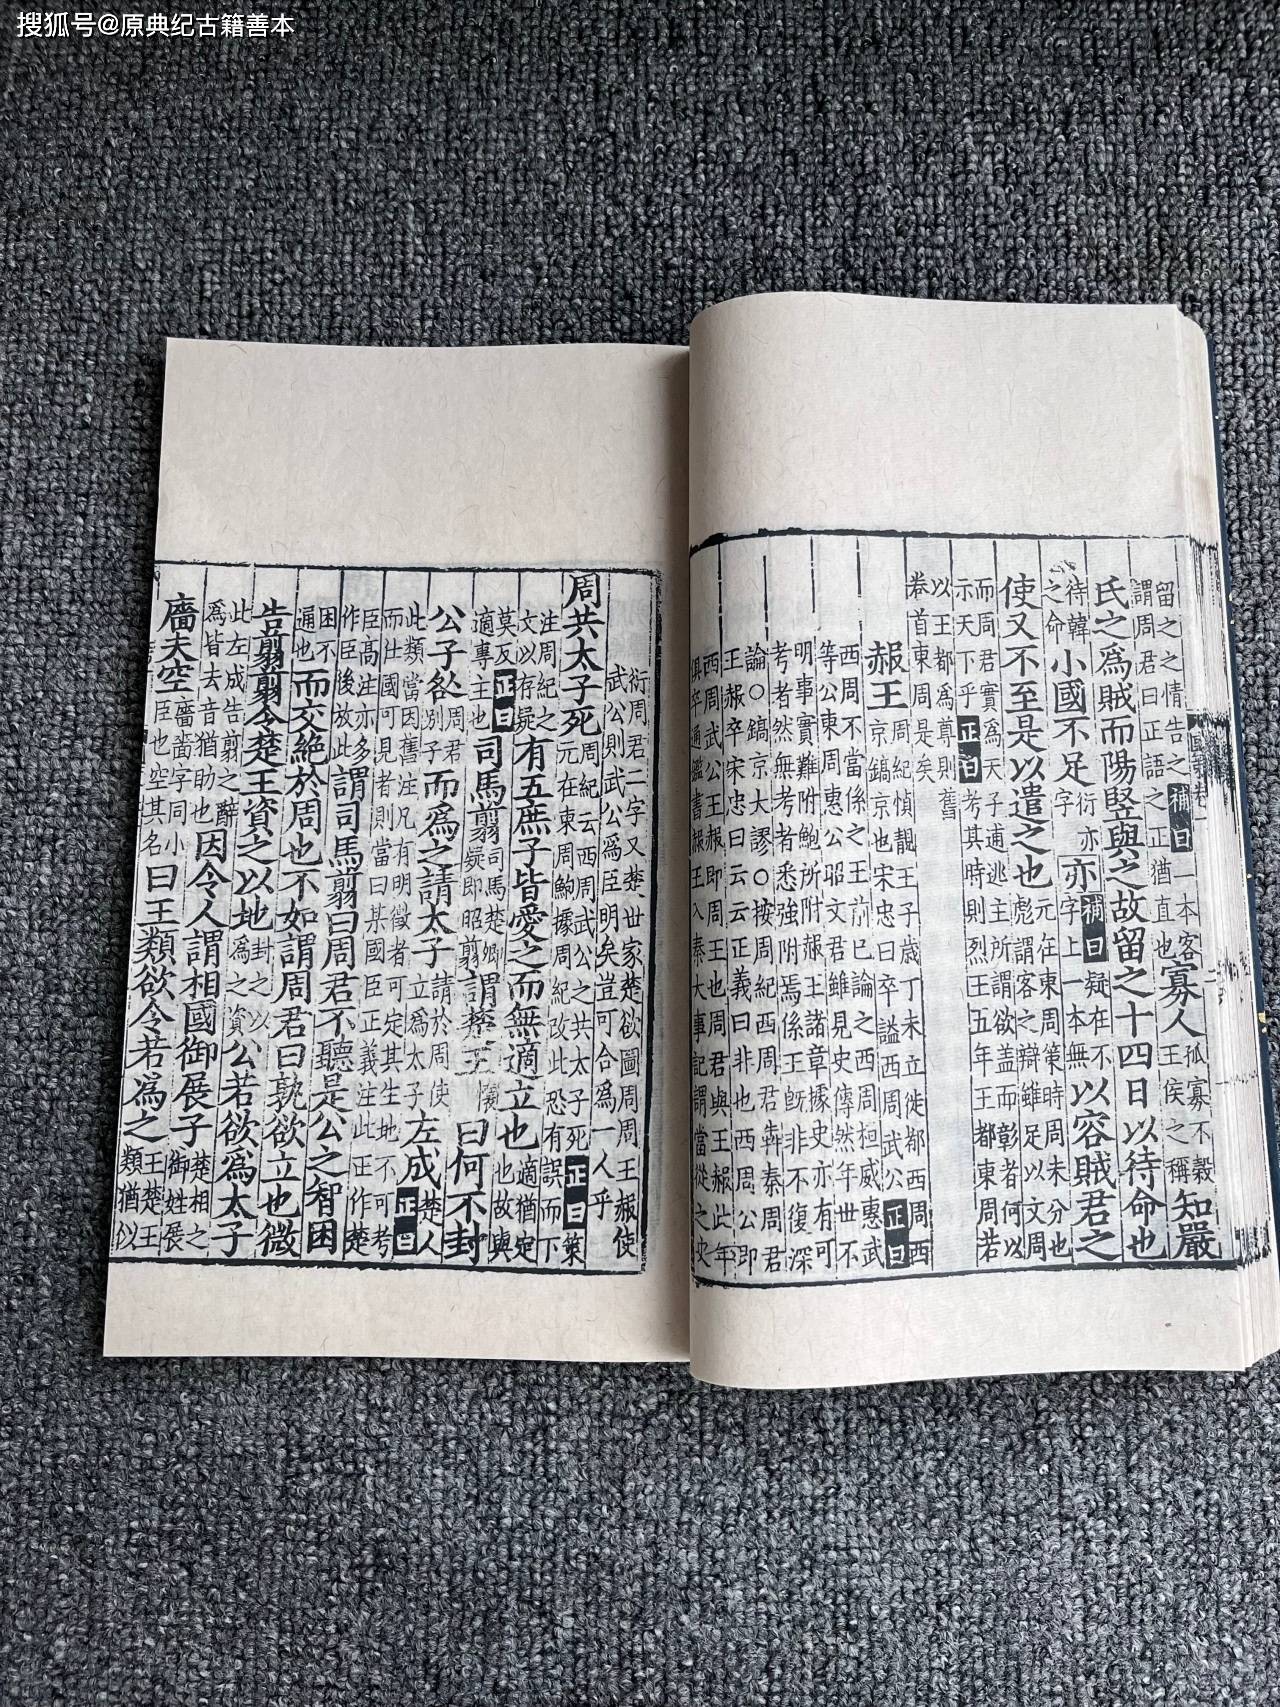 搜狐号@原典纪古籍善本
留之之情告之補曰一本客
謂周君曰正語之正猶直也
寡人
孤寡不穀
王侯之稱
知嚴
氏之爲賊而陽竪與之故留之十四日以待命也
待韓
之命
小國不足
字
衍亦
亦
補曰疑在不
字上一本無
以容賊君之
使又不至是以遣之也
元在東周策時周未分也
彪謂客之辯雖足以文周
而周君實爲天子逋逃主所謂欲盖而彰者何以
示天下乎正曰考其時則烈王五年王都東周若
以王都爲尊則舊
卷首東周是矣
赧王
周紀慎靚王子歳丁未立徙都西周西
京鎬京也宋忠曰卒謚西周武公正曰
西周不當係之王前已論之西周桓威惠武
等公東周惠公昭文君雖見史傳然年世不
明事實難附鮑所附赧王諸章據史亦有可
考者然無考者悉強附焉係王旣非不復深
論○鎬京大謬○按周紀西周君犇秦周君
王赧卒宋忠曰云云正義曰非也西周公即
西周武公王赧即周王也周君與王赧此年
俱卒通鑑書赧王入秦大事記謂當從之史
衍周君二字又楚世家楚欲圖周周王赧使
武公則武公爲臣明矣豈可合爲一人乎
周共太子死
周紀云西周武公之共太子死正曰策
元在東周鮑據周紀改此恐有誤而下
注周紀之
文以存疑
有五庶子皆愛之而無適立也
適猶定
也故與
莫反
適專主也
正曰
司馬翦
司馬楚卿
疑即昭翦
謂楚王
懷
曰何不封
公子咎
周君
別子
而爲之請太子
請於周使
立爲太子
左成
楚人
正曰
此類當因舊注凡有明徵者可定其生地不可考
而仕國可見者則當曰某國臣正義注此正作楚
臣髙注亦多
作臣後放此
謂司馬翦曰周君不聽是公之智困
困不
通也
而交絶於周也不如謂周君曰孰欲立也微
告翦翦今楚王資之以地
封之以
爲之資
公若欲爲太子
此左成告翦之辭
爲皆去音猶助也
因令人謂相國御展子
楚相之
御姓展
廧夫空
廧嗇字同小
臣也空其名
曰王類欲令若爲之
王楚王
類猶似